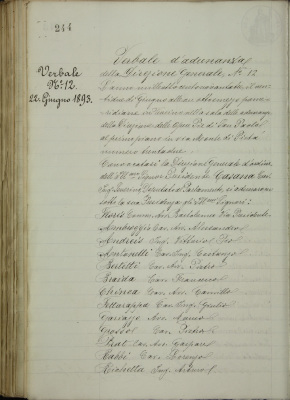 244
Verbale
N.° 12.
22. Giugno 1893.
Verbale d'adunanza
della Direzione Generale N. 12
L'anno mille ottocento novantatre, il venti
due di Giugno alle ore
ridiane in Torino nella sala delle adunanze
della Direzione delle Opere Pie di San Paolo,
al primo piano in via Monte di Pietà
numero trentadue.
Convocatasi la Direzione Generale d'ordine
dell' Ill.mo Signor Presidente Casana Cav.
Ing. Severino Deputato al Parlamento, si adunarono
sotto la sua Presidenza gli Ill.mi Signori:
Floris Comm. Avv. Bartolomeo Vice Presidente
Cav. Avv. Alessandro
Andreis Ing. Vittorio
Antonelli Cav. Ing. Costanzo
Bertetti Cav. Avv. Pietro
Cav. Francesco
Chiesa Cav. Avv. Camillo
Fettarappa Cav. Ing. Giulio
Avv. Marco
Cav. Pietro
Cav. Avv. Gaspare
Rabbi Cav. Lorenzo
Richetta Ing.